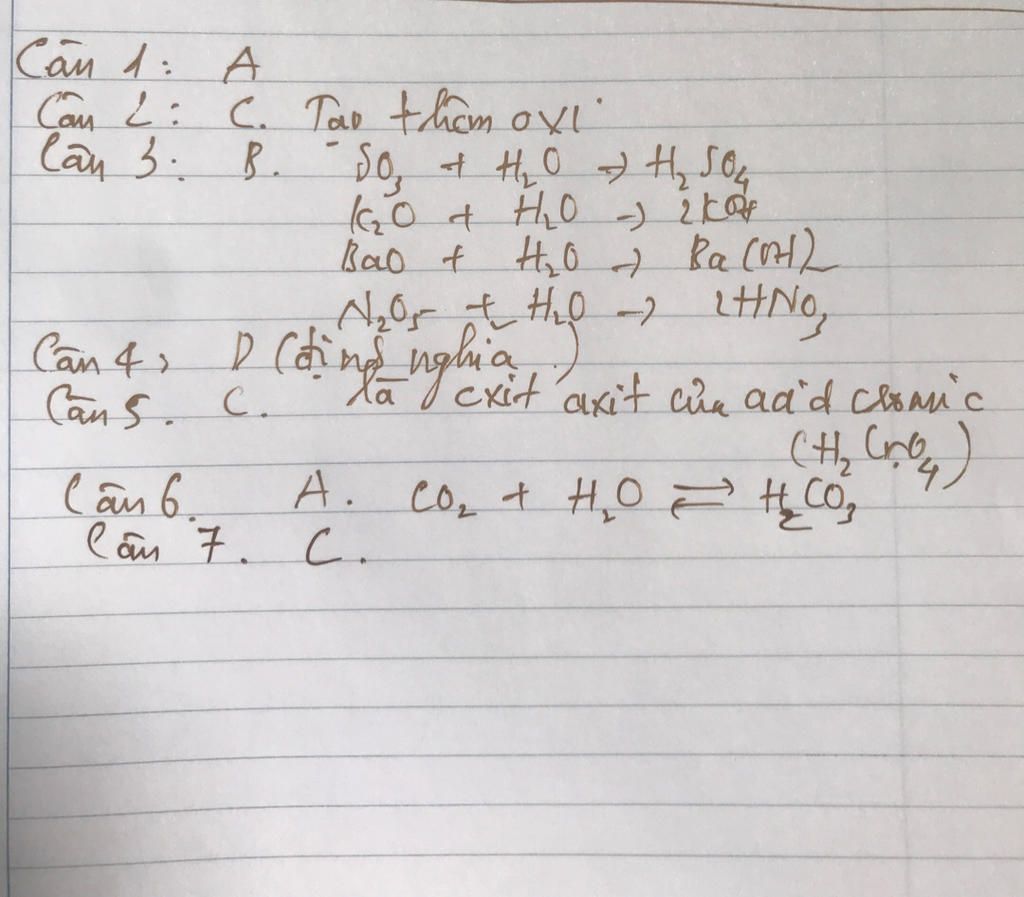 Câu 1: A
Câu 2: C. Tạo thêm oxi
Câu 3: B. SO₃ + H₂O → H₂SO₄
K₂O + H₂O → 2KOH
BaO + H₂O → Ba(OH)₂
N₂O₅ + H₂O → 2HNO₃
Câu 4, D (định nghĩa)
Câu 5. C. là oxit axit của acid cromic
(H₂CrO₄)
Câu 6. A. CO₂ + H₂O ⇌ H₂CO₃
Câu 7. C.